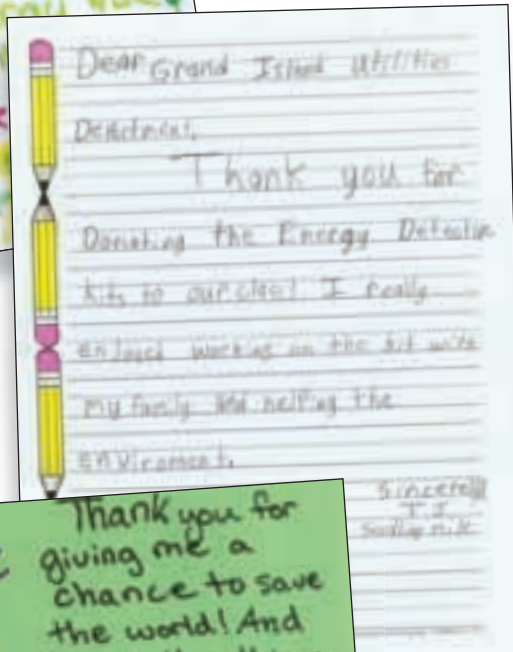 Dear Grand Island Utilities
Thank you for
Donating the Energy Detective
kits to our class! I really
enjoyed working on the kit with
my family and helping the
enviroment.
Sincerely
T.J.
Thank you for
giving me a
chance to save
the world! And